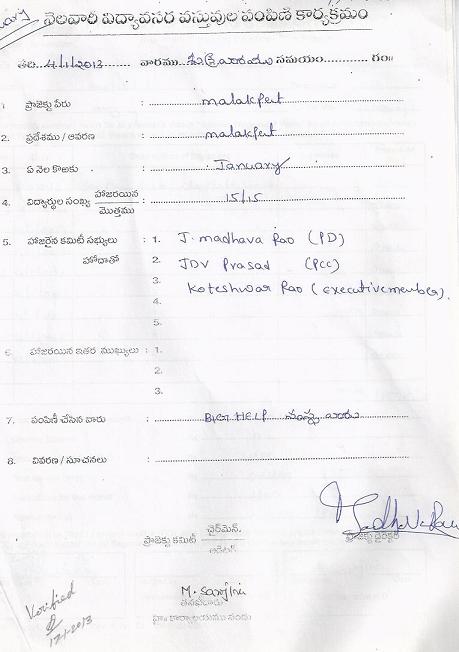 నెలవారీ విద్యావసర వస్తువుల పంపిణీ కార్యక్రమం
తేది. 4/1/2013 వారము శుక్రవారము సమయం గం॥
1. ప్రాజెక్టు పేరు : malakpet
2. ప్రదేశము / ఆవరణ : malakpet
3. ఏ నెల కొఱకు : January
4. విద్యార్థుల సంఖ్య హాజరయిన / మొత్తము : 15/15
5. హాజరైన కమిటీ సభ్యులు : 1. J. madhava Rao (PD)
హోదాతో 2. JDV Prasad (PCC)
3. Koteshwar Rao (executive member).
4.
5.
6. హాజరయిన ఇతర ముఖ్యులు : 1.
2.
3.
7. పంపిణీ చేసిన వారు : BIG HELP సంస్థ వారు
8. వివరణ / సూచనలు :
ప్రాజెక్టు కమిటీ ఛైర్మెన్.
ప్రాజెక్టు డైరెక్టర్
M. Sarojini
Verified
17-1-2013